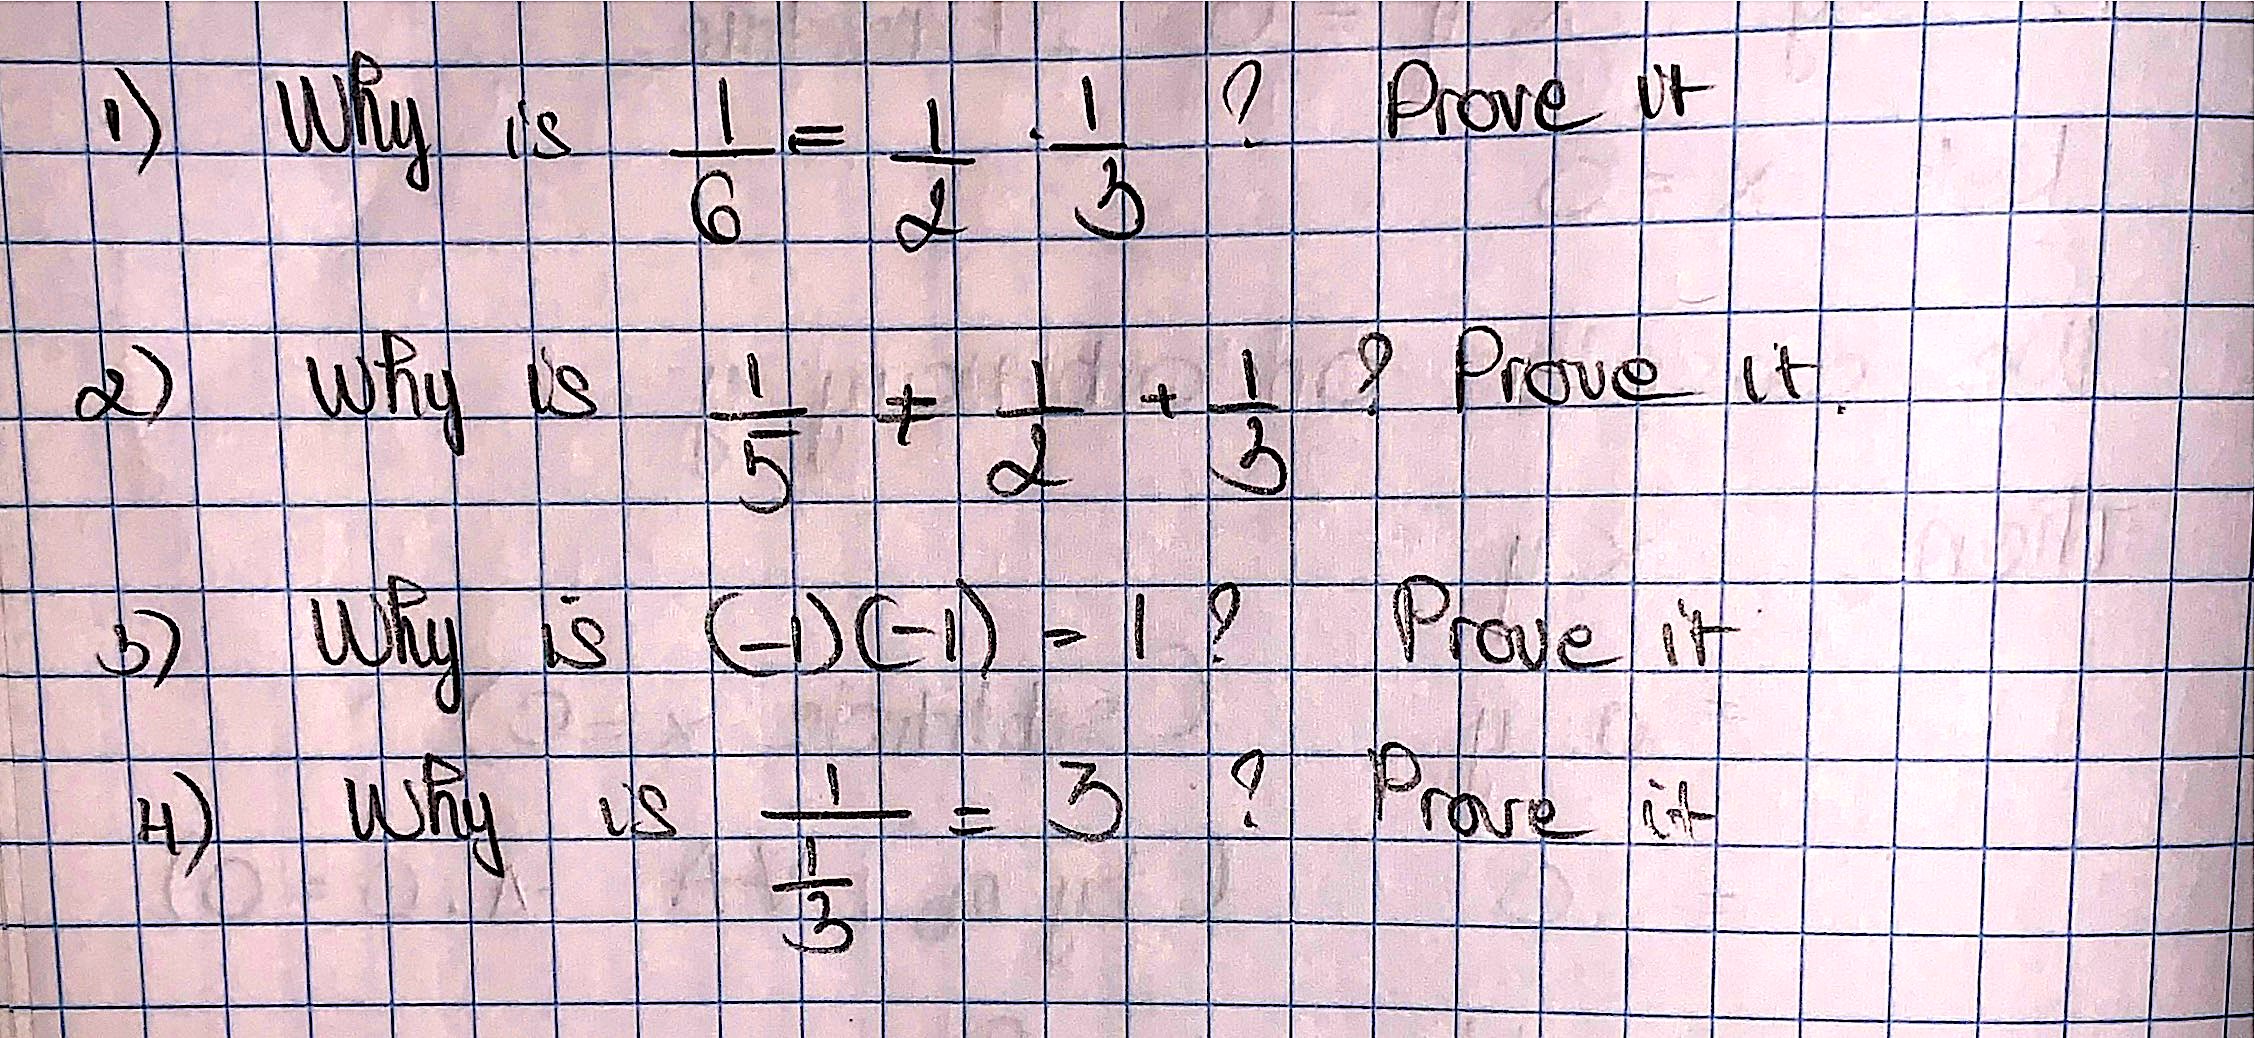 1) Why is 1/6 = 1/2 · 1/3 ? Prove it
2) Why is 1/5 ≠ 1/2 + 1/3 ? Prove it.
3) Why is (-1)(-1) = 1 ? Prove it
4) Why is 1/(1/3) = 3 ? Prove it